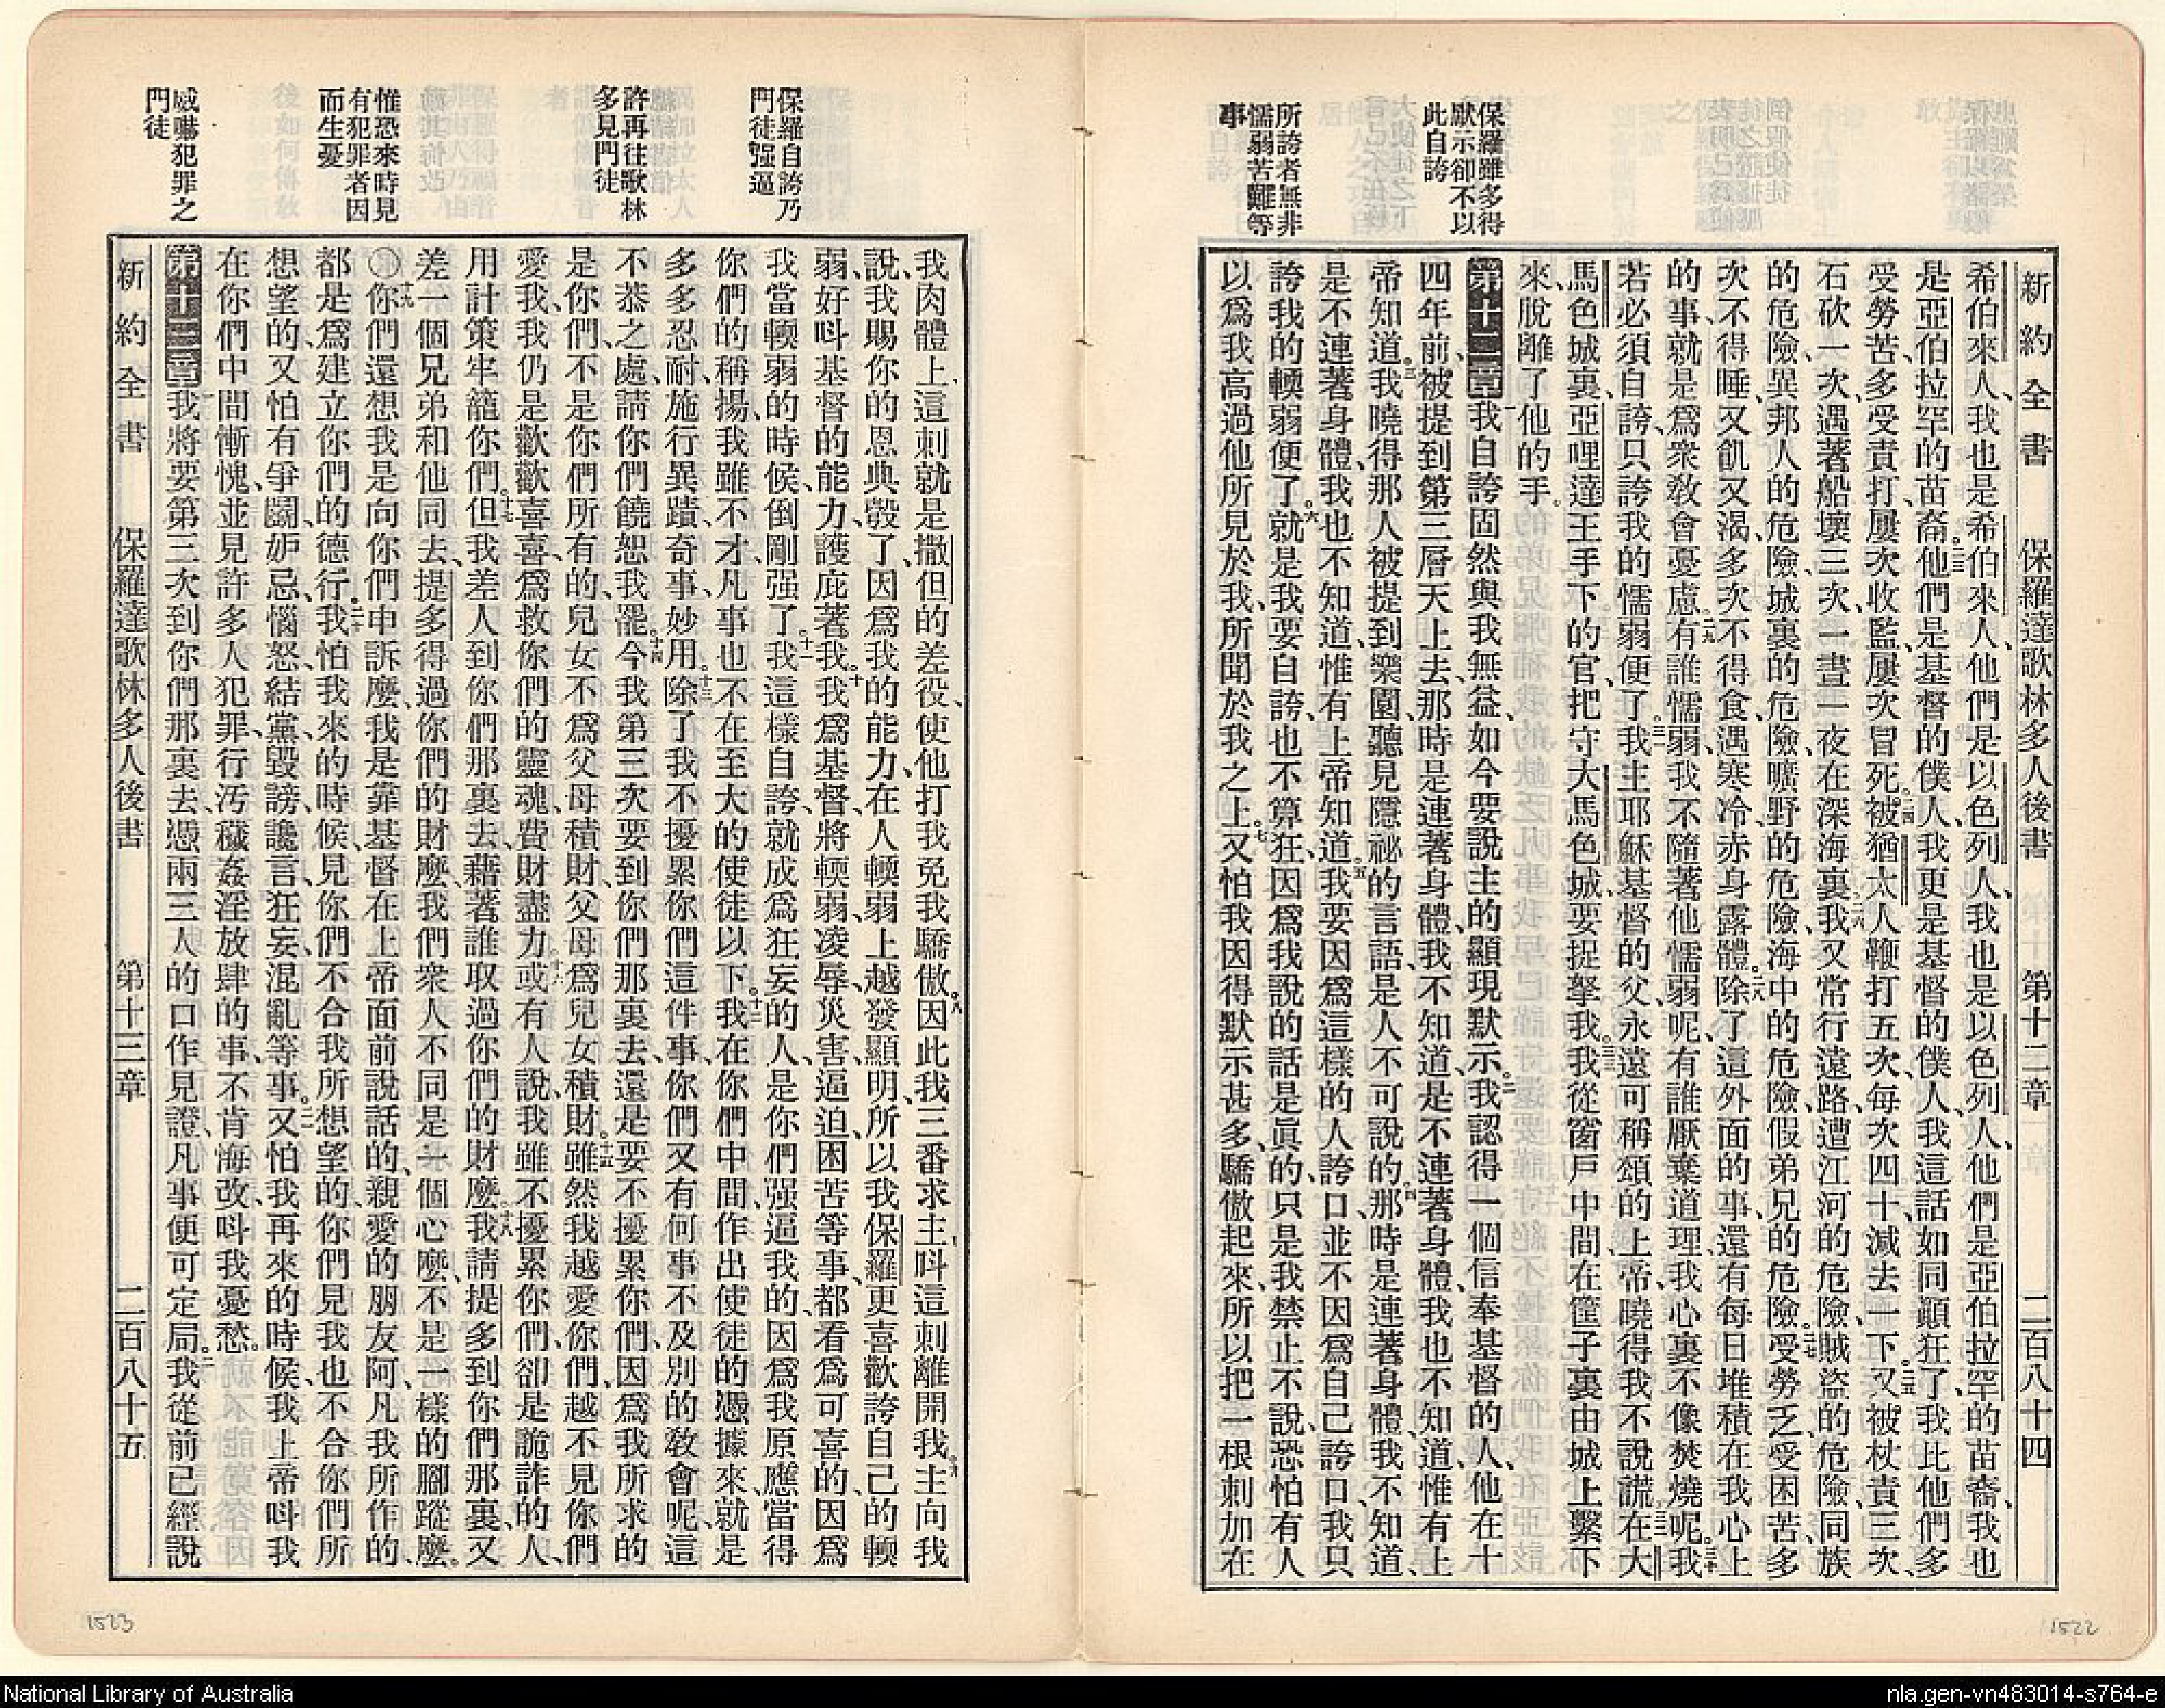 新約全書 保羅達歌林多人後書 第十二章 二百八十四
保羅雖多得
默示卻不以
此自誇
所誇者無非
懦弱苦難等
事
希伯來人、我也是希伯來人、他們是以色列人、我也是以色列人、他們是亞伯拉罕的苗裔、我也
是亞伯拉罕的苗裔。二三他們是基督的僕人、我更是基督的僕人、我這話如同顛狂了、我比他們多
受勞苦、多受責打、屢次收監、屢次冒死。二四被猶太人鞭打五次、每次四十減去一下。二五又被杖責三次、
石砍一次、遇著船壞三次、一晝一夜在深海裏。二六我又常行遠路、遭江河的危險、賊盜的危險、同族
的危險、異邦人的危險、城裏的危險、曠野的危險、海中的危險、假弟兄的危險。二七受勞乏、受困苦、多
次不得睡、又飢又渴、多次不得食、遇寒冷、赤身露體。二八除了這外面的事、還有每日堆積在我心上
的事、就是爲衆敎會憂慮。二九有誰懦弱、我不隨著他懦弱呢、有誰厭棄道理、我心裏不像焚燒呢。三十我
若必須自誇、只誇我的懦弱便了。三一我主耶穌基督的父、永遠可稱頌的上帝、曉得我不說謊。三二在大
馬色城裏、亞哩達王手下的官、把守大馬色城、要捉拏我。三三我從窗戶中間、在筐子裏由城上繫下
來、脫離了他的手。
第十二章一我自誇固然與我無益、如今要說主的顯現默示。二我認得一個信奉基督的人、他在十
四年前、被提到第三層天上去、那時是連著身體、我不知道、是不連著身體、我也不知道、惟有上
帝知道。三我曉得那人、被提到樂園、聽見隱祕的言語、是人不可說的。四那時是連著身體、我不知道、
是不連著身體、我也不知道、惟有上帝知道。五我要因爲這樣的人誇口、並不因爲自己誇口、我只
誇我的輭弱便了。六就是我要自誇、也不算狂、因爲我說的話是眞的、只是我禁止不說、恐怕有人
以爲我高過他所見於我、所聞於我之上。七又怕我因得默示甚多、驕傲起來、所以把一根刺加在
1522
保羅自誇乃
門徒强逼
許再往歌林
多見門徒
惟恐來時見
有犯罪者因
而生憂
威嚇犯罪之
門徒
我肉體上、這刺就是撒但的差役、使他打我、免我驕傲。八因此我三番求主、呌這刺離開我。九主向我
說、我賜你的恩典彀了、因爲我的能力、在人輭弱上、越發顯明、所以我保羅更喜歡誇自己的輭
弱、好呌基督的能力、護庇著我。十我爲基督、將輭弱、凌辱、災害、逼迫、困苦等事、都看爲可喜的、因爲
我當輭弱的時候、倒剛强了。十一我這樣自誇、就成爲狂妄的人、是你們强逼我的、因爲我原應當得
你們的稱揚、我雖不才、凡事也不在至大的使徒以下。十二我在你們中間、作出使徒的憑據來、就是
多多忍耐、施行異蹟、奇事、妙用。十三除了我不擾累你們這件事、你們又有何事不及別的敎會呢、這
不恭之處、請你們饒恕我罷。十四今我第三次要到你們那裏去、還是要不擾累你們、因爲我所求的
是你們、不是你們所有的、兒女不爲父母積財、父母爲兒女積財。十五雖然我越愛你們、越不見你們
愛我、我仍是歡歡喜喜、爲救你們的靈魂、費財盡力。十六或有人說、我雖不擾累你們、卻是詭詐的人、
用計策牢籠你們。十七但我差人到你們那裏去、藉著誰取過你們的財麼。十八我請提多到你們那裏、又
差一個兄弟和他同去、提多得過你們的財麼、我們衆人不同是一個心麼、不是一樣的腳蹤麼。
○十九你們還想我是向你們申訴麼、我是靠基督在上帝面前說話的、親愛的朋友阿、凡我所作的、
都是爲建立你們的德行。二十我怕我來的時候、見你們不合我所想望的、你們見我也不合你們所
想望的、又怕有爭鬭、妒忌、惱怒、結黨、毀謗、讒言、狂妄、混亂等事。二一又怕我再來的時候、我上帝呌我
在你們中間慚愧、並見許多人犯罪、行汚穢、姦淫放肆的事、不肯悔改、呌我憂愁。
第十三章一我將要第三次到你們那裏去、憑兩三人的口作見證、凡事便可定局。二我從前已經說
新約全書 保羅達歌林多人後書 第十三章 二百八十五
1523
National Library of Australia
nla.gen-vn483014-s764-e